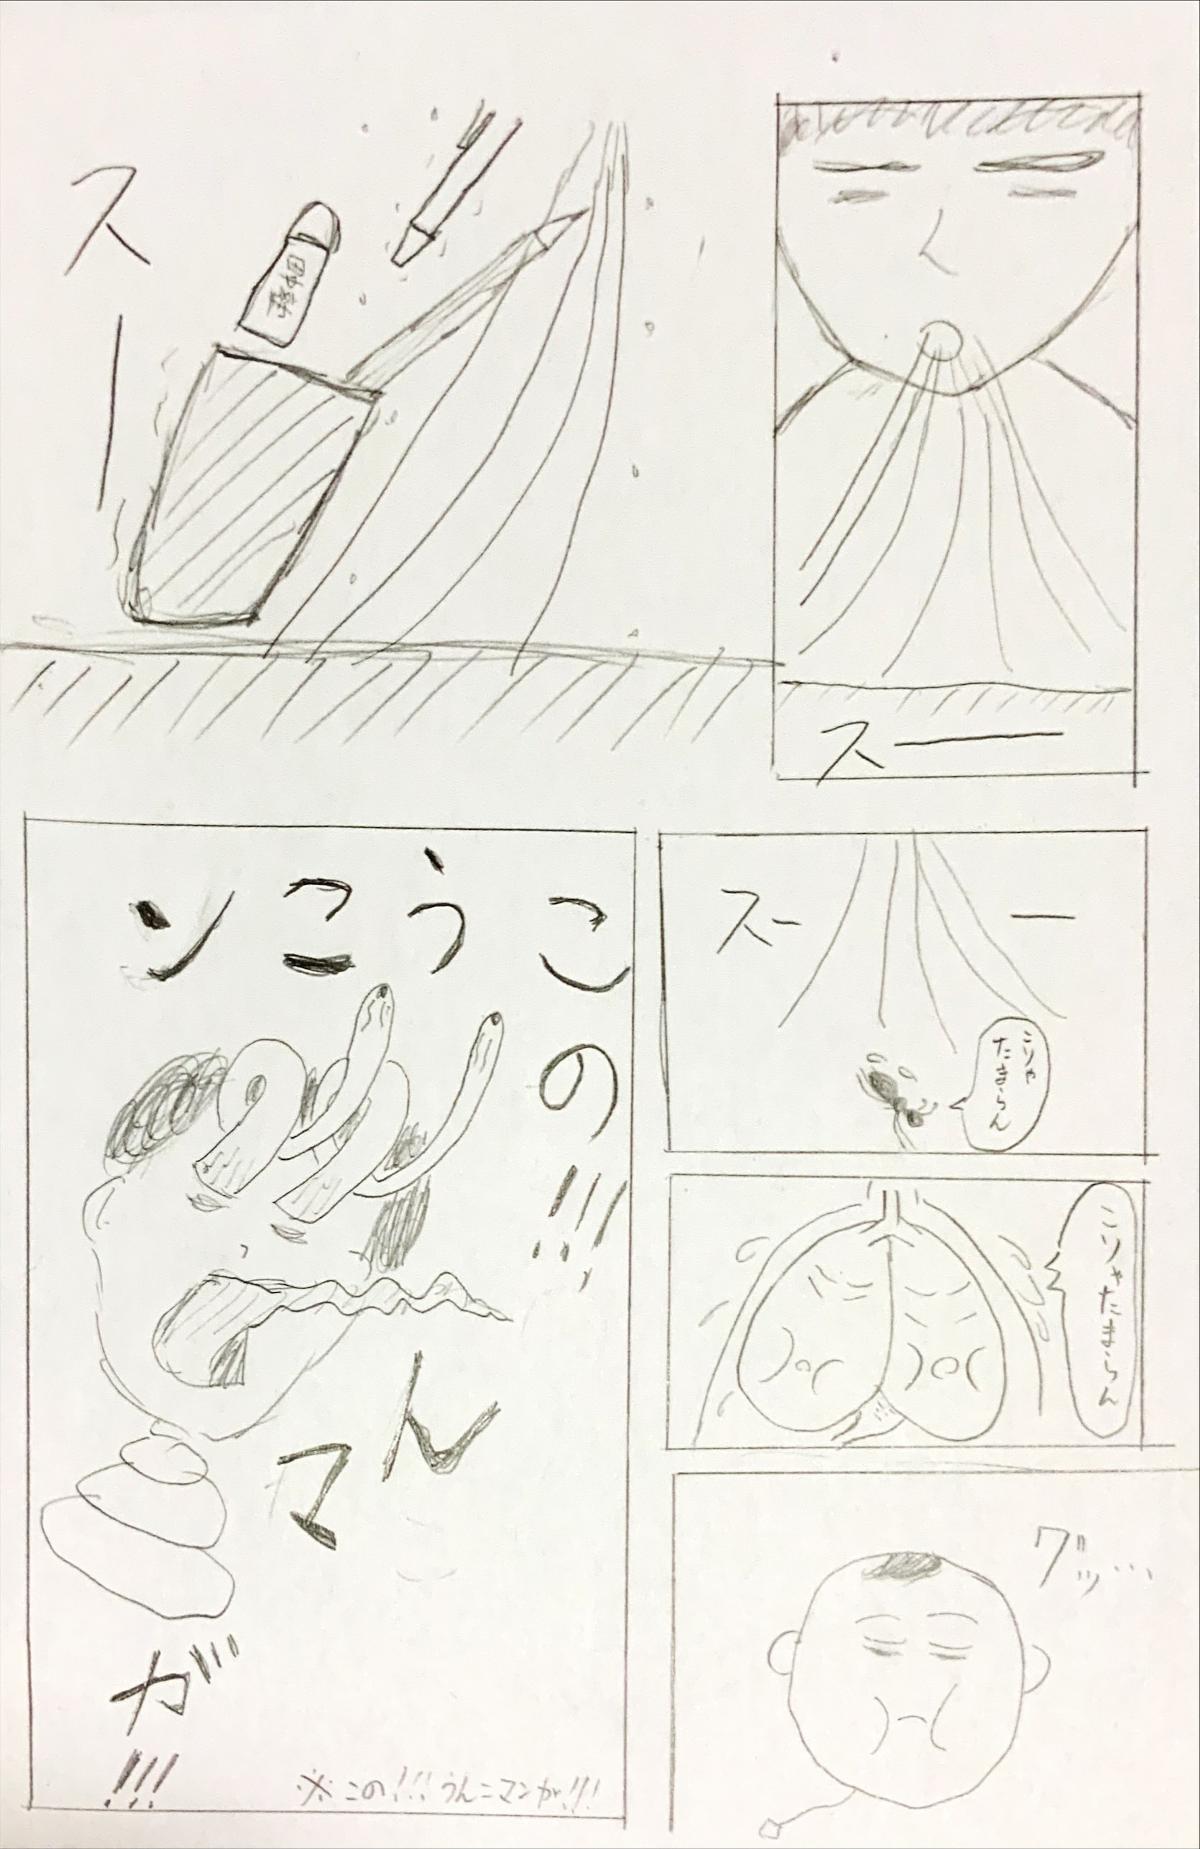 スーー
スー
スーー
こりゃ
たまらん
こりゃたまらん
グッ…
この!!!
うこン
んマ
が!!!
※この!!!うんこマンが!!!